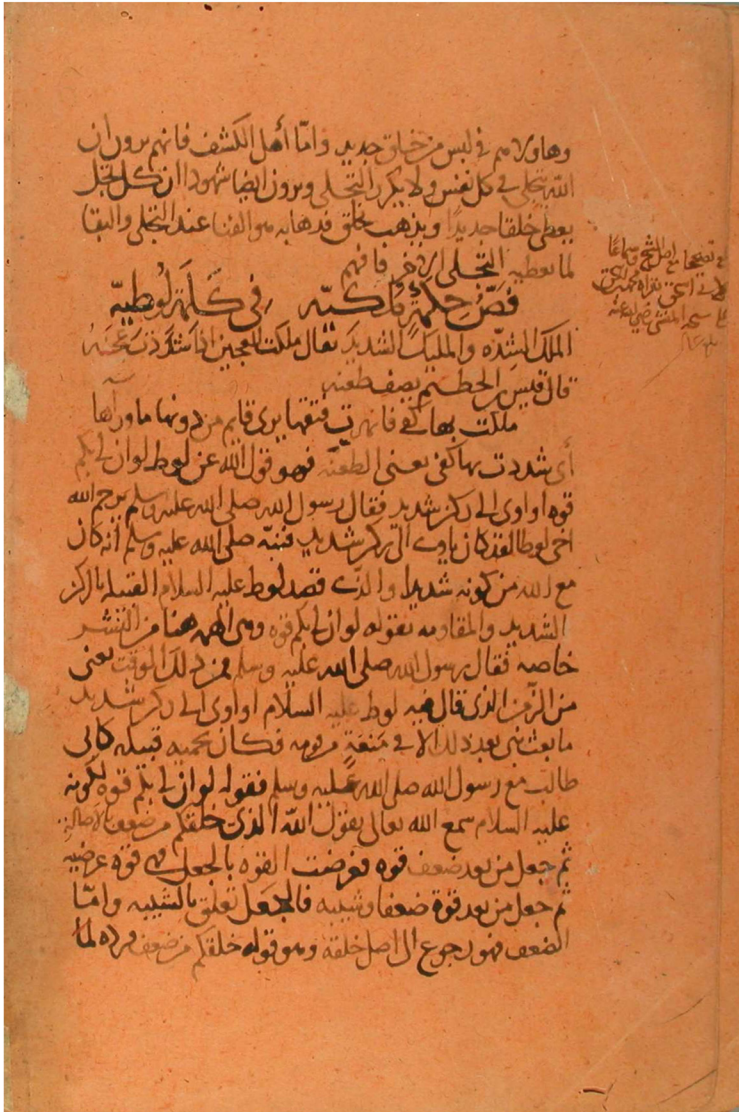 وهاولا هم في لبس من خلق جديد واما أهل الكشف فانهم يرون ان
الله يتجلى في كل نفس ولا يكرر التجلى ويرون ايضا شهودا ان كل تجل
يعطى خلقا جديدا ويذهب بخلق فذهابه هو الفنا عند التجلى والبقا
لما يعطيه التجلى الاخر فافهم
فص حكمة ملكية في كلمة لوطية
الملك الشده والمليك الشديد يقال ملكت العجين اذا شددت عجنه
قال قيس بن الحطيم يصف طعنه
ملكت بها كفى فانهرت فتقها يرى قايم من دونها ما وراها
أى شددت بها كفى يعنى الطعنه فهو قول الله عن لوط لو ان لى بكم
قوه او اوى الى ركن شديد فقال رسول الله صلى الله عليه وسلم يرحم الله
اخى لوطا لقد كان ياوى الى ركن شديد فنبه صلى الله عليه وسلم أنه كان
مع الله من كونه شديدا والذى قصد لوط عليه السلام القبيله بالركن
الشديد والمقاومه بقوله لو ان لى بكم قوه وهى الهمه هنا من البشر
خاصه فقال رسول الله صلى الله عليه وسلم فمن ذلك الوقت يعنى
من الزمن الذى قال فيه لوط عليه السلام او اوى الى ركن شديد
ما بعث نبى بعد ذلك الا فى منعة من قومه فكان يحميه قبيله كابى
طالب مع رسول الله صلى الله عليه وسلم فقوله لو ان لى بكم قوه لكونه
عليه السلام سمع الله تعالى يقول الله الذى خلقكم من ضعف بالاصالة
ثم جعل من بعد ضعف قوه فعرضت القوه بالجعل فهى قوه عرضيه
ثم جعل من بعد قوة ضعفا وشيبه فالجعل تعلق بالشيبه واما
الضعف فهو رجوع الى اصل خلقه وهو قوله خلقكم من ضعف فرده لما